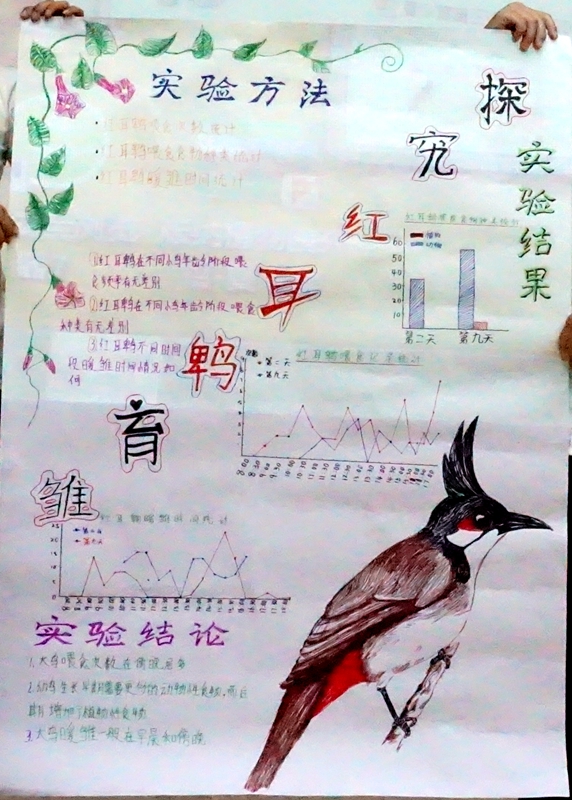 实验方法
• 红耳鹎喂食次数统计
• 红耳鹎喂食食物种类统计
• 红耳鹎暖雏时间统计
探
究
红
耳
鹎
育
雏
实验结果
①红耳鹎在不同小鸟年龄阶段喂
食次数有无差别
②红耳鹎在不同小鸟年龄阶段喂食
种类有无差别
③红耳鹎不同时间
段暖雏时间情况如
何
60
50
40
30
20
10
植物
动物
第二天 第九天
红耳鹎喂食次数统计
第二天
第九天
红耳鹎暖雏时间统计
实验结论
1.大鸟喂食次数在傍晚居多
2.幼鸟生长早期需要更多的动物性食物,而后
期增加了植物性食物
3.大鸟暖雏一般在早晨和傍晚